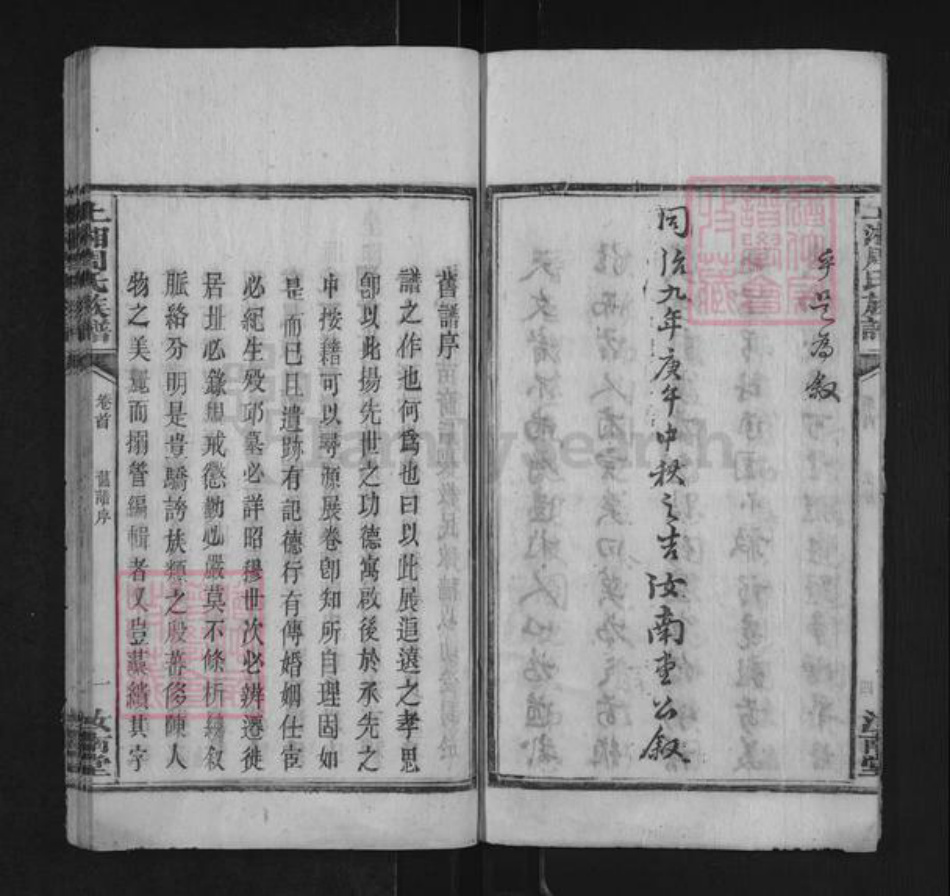 上湘周氏族譜
乎是為叙
同治九年庚午中秋之吉汝南堂公叙
汝南堂
舊譜序
譜之作也何爲也曰以此展追遠之孝思
卽以此揚先世之功德寓啟後於承先之
中按籍可以尋源展卷卽知所自理固如
是而已且遺跡有記德行有傳婚姻仕宦
必紀生殁邱墓必詳昭穆世次必辨遷徙
居址必錄規戒懲勸必嚴莫不條析縷敘
脈絡分明是豈驕誇族類之殷蕃侈陳人
物之美麗而搦管編輯者又豈藻繢其字
上湘周氏族譜
卷首
舊譜序
一
汝南堂
FamilySearch